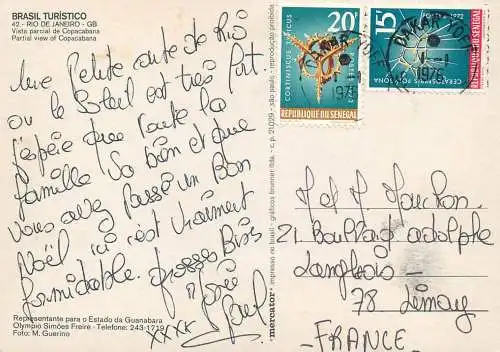 BRASIL TURÍSTICO
42 - RIO DE JANEIRO - GB
Vista parcial de Copacabana
Partial view of Copacabana
Une Petite carte de Rio
ou le Soleil est très fort.
J'espère que toute la
famille va bien et que
vous avez passé un Bon
Noël ici c'est vraiment
formidable. grosses Bises
XXXX
Representante para o Estado da Guanabara
Olympio Simões Freire - Telefone: 243-1719
Foto: M. Guerino
mercator
impresso no brasil - gráficos brunner ltda. - c. p. 21.029 - são paulo - reprodução proibida
20F
POSTES
REPUBLIQUE DU SENEGAL
15
1972
DAKAR-YOFF
1978
M et M
21 boulevard adolphe
78
- FRANCE -